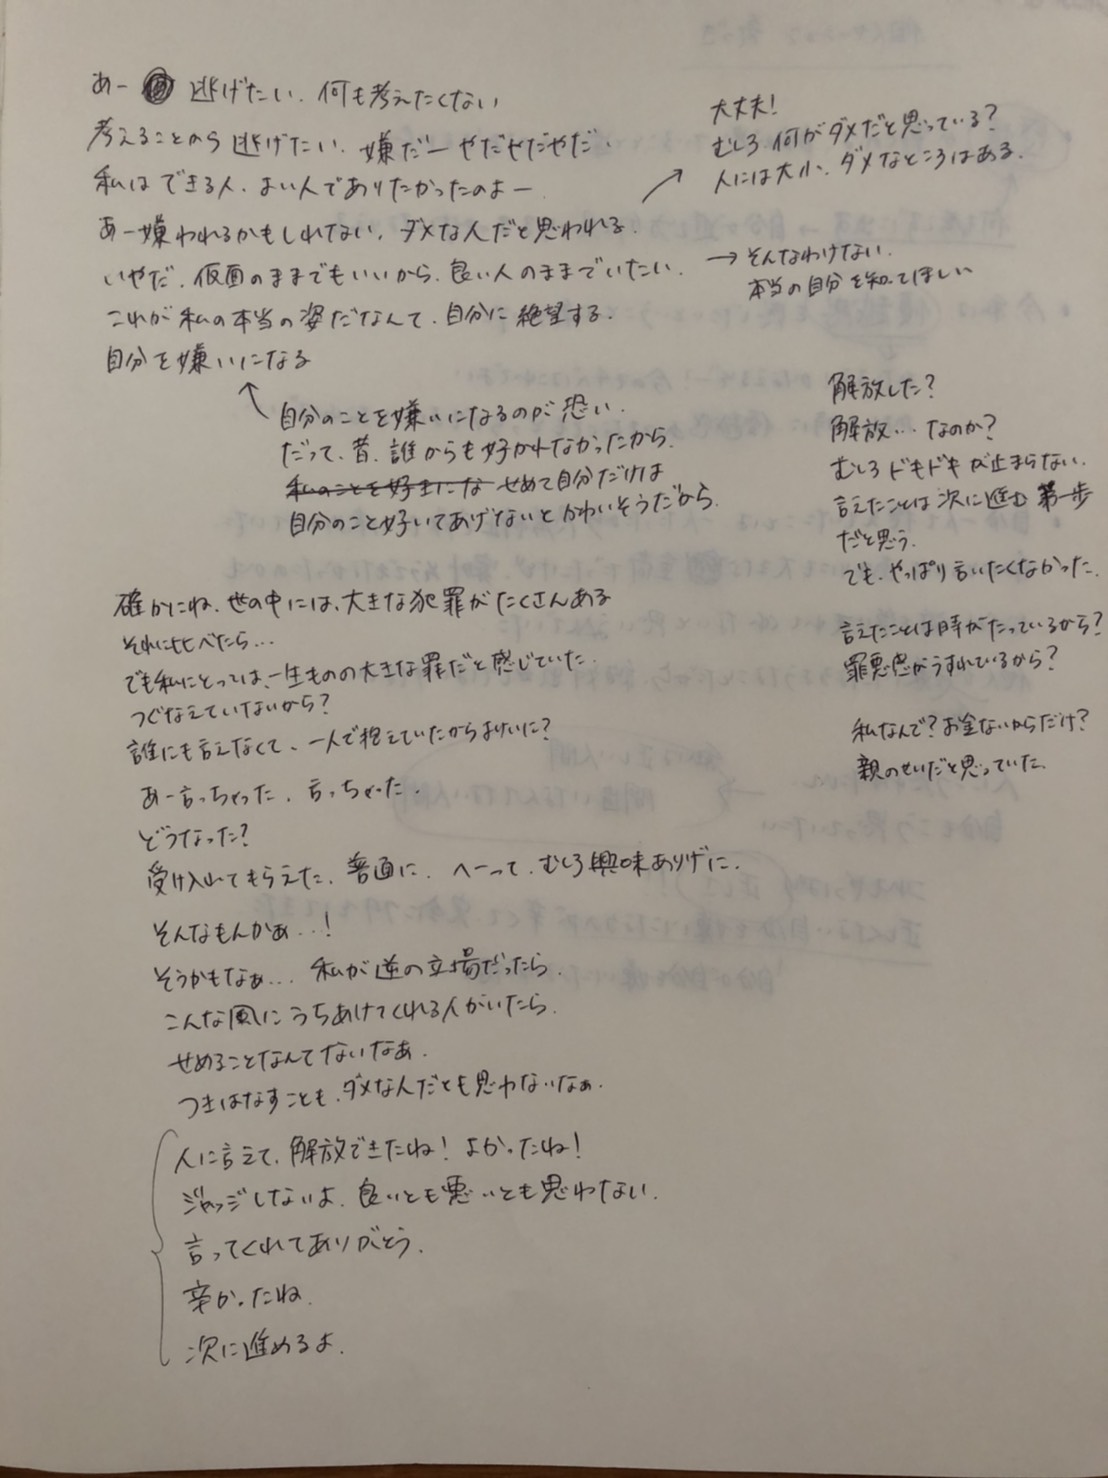 あー 逃げたい、何も考えたくない
考えることから逃げたい、嫌だー やだやだやだ、
私はできる人、よい人でありたかったのよー
あー嫌われるかもしれない、ダメな人だと思われる、
いやだ、仮面のままでもいいから、良い人のままでいたい、
これが私の本当の姿だなんて、自分に絶望する、
自分を嫌いになる
大丈夫！
むしろ何がダメだと思っている？
人には大小、ダメなところはある、
→そんなわけない、
本当の自分を知ってほしい
自分のことを嫌いになるのが恐い、
だって、昔、誰からも好かれなかったから、
私のことを好きにな せめて自分だけは
自分のこと好いてあげないとかわいそうだから、
解放した？
解放…なのか？
むしろドキドキが止まらない、
言えたことは次に進む第一歩
だと思う、
でも、やっぱり言いたくなかった、
言えたことは時がたっているから？
罪悪感がうすれているから？
私なんで？お金ないからだけ？
親のせいだと思っていた、
確かにね、世の中には、大きな犯罪がたくさんある
それに比べたら…
でも私にとっては、一生ものの大きな罪だと感じていた、
つぐなえていないから？
誰にも言えなくて、一人で抱えていたからよけいに？
あー言っちゃった、言っちゃった、
どうなった？
受け入れてもらえた、普通に、へーって、むしろ興味ありげに、
そんなもんかぁ…！
そうかもなぁ… 私が逆の立場だったら、
こんな風にうちあけてくれる人がいたら、
せめることなんてないなぁ、
つきはなすことも、ダメな人だとも思わないなぁ、
人に言えて、解放できたね！よかったね！
ジャッジしないよ、良いとも悪いとも思わない、
言ってくれてありがとう、
辛かったね、
次に進めるよ、